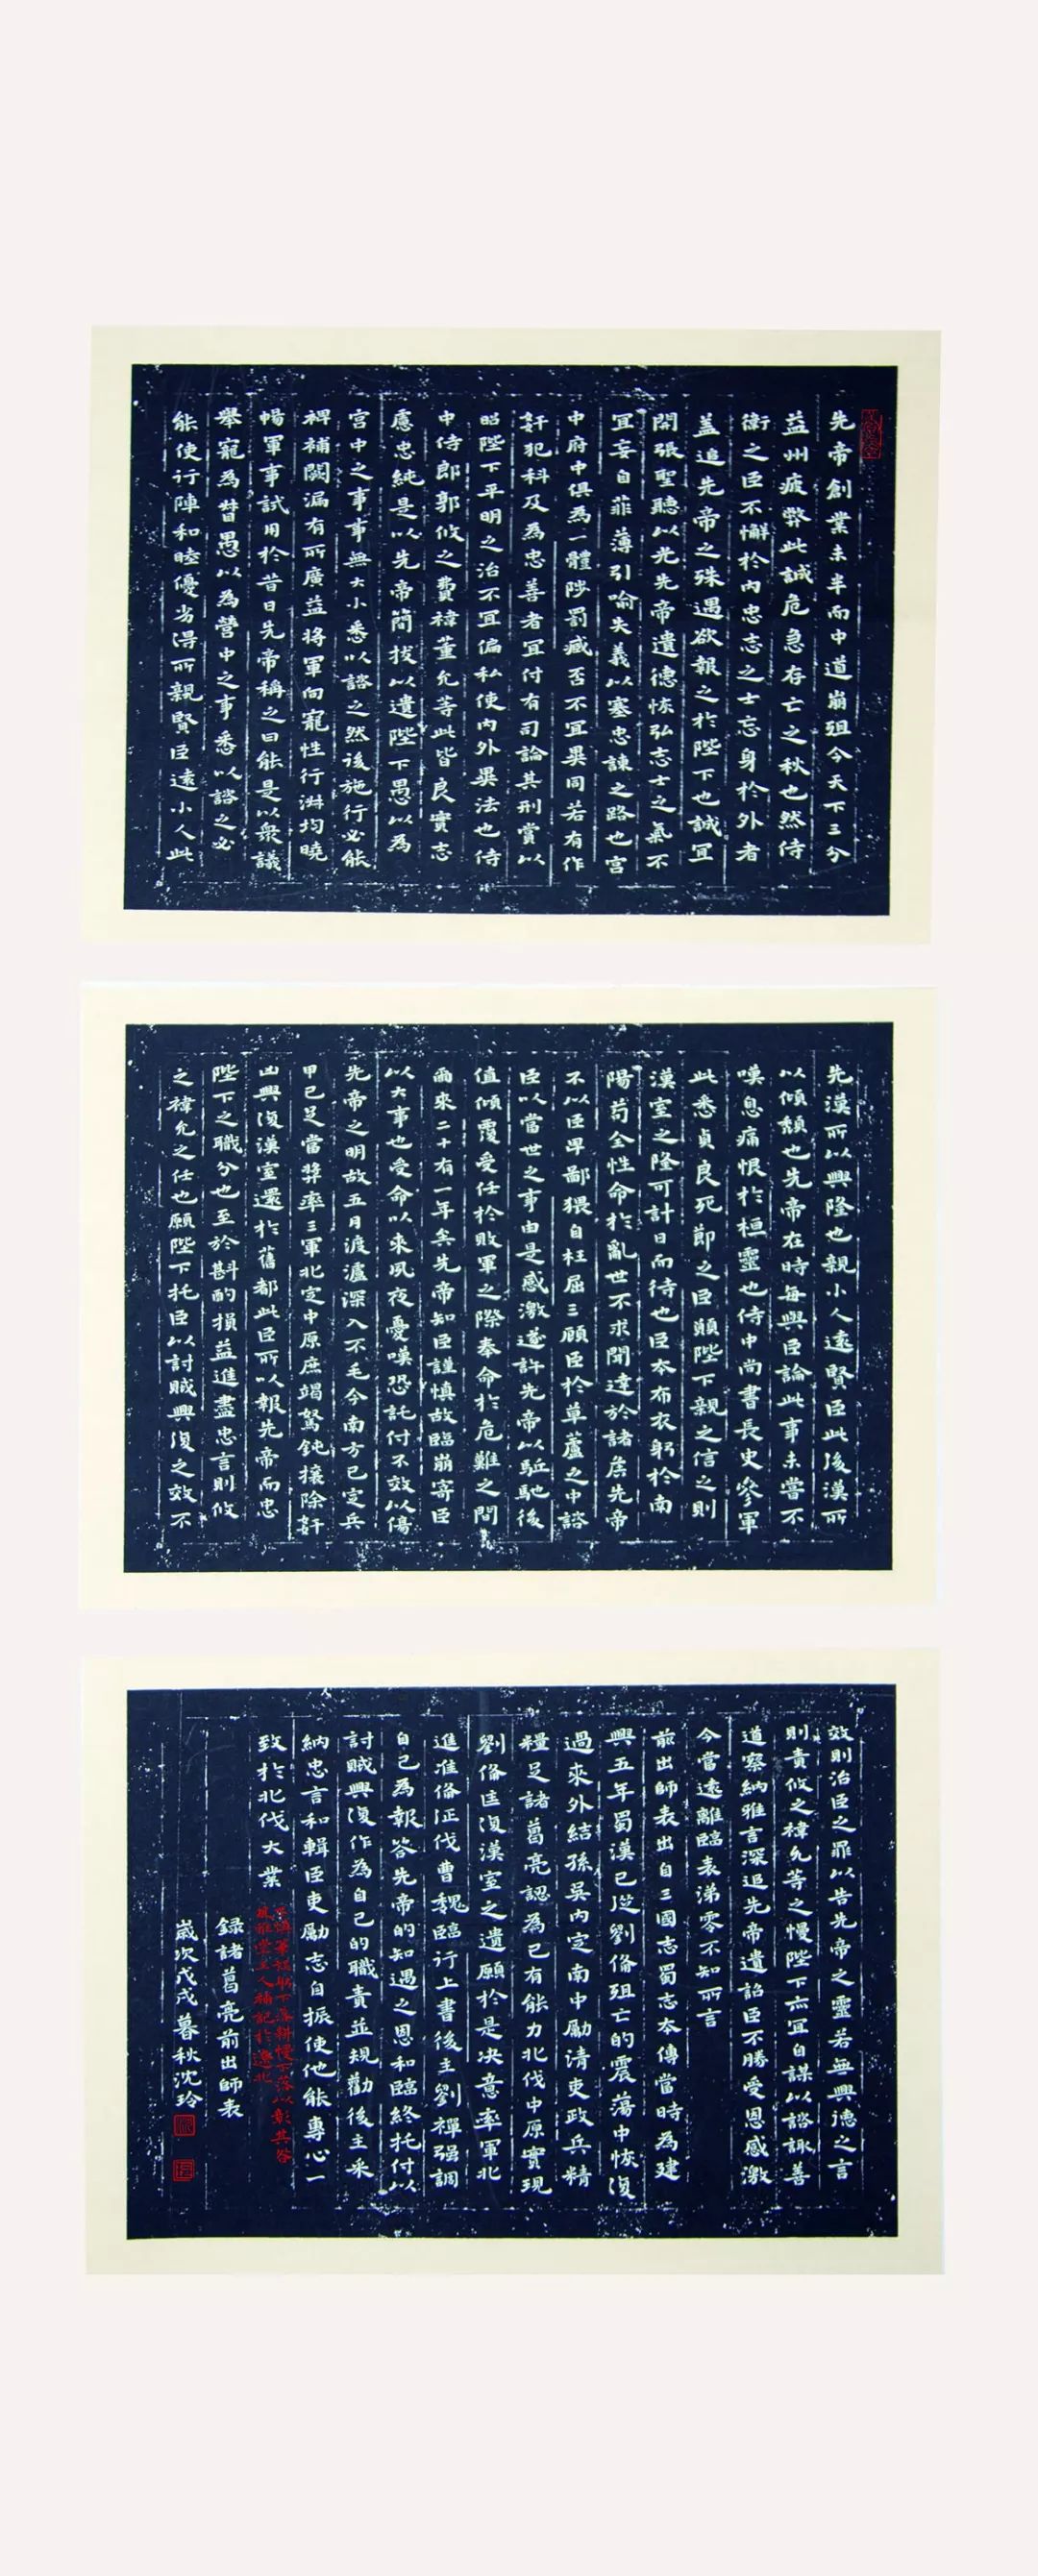 先帝創業未半而中道崩殂今天下三分
益州疲弊此誠危急存亡之秋也然侍
衛之臣不懈於內忠志之士忘身於外者
蓋追先帝之殊遇欲報之於陛下也誠宜
開張聖聽以光先帝遺德恢弘志士之氣不
宜妄自菲薄引喻失義以塞忠諫之路也宮
中府中俱為一體陟罰臧否不宜異同若有作
奸犯科及為忠善者宜付有司論其刑賞以
昭陛下平明之治不宜偏私使內外異法也侍
中侍郎郭攸之費禕董允等此皆良實志
慮忠純是以先帝簡拔以遺陛下愚以為
宮中之事事無大小悉以諮之然後施行必能
裨補闕漏有所廣益將軍向寵性行淑均曉
暢軍事試用於昔日先帝稱之曰能是以衆議
舉寵為督愚以為營中之事悉以諮之必
能使行陣和睦優劣得所親賢臣遠小人此
先漢所以興隆也親小人遠賢臣此後漢所
以傾頹也先帝在時每與臣論此事未嘗不
嘆息痛恨於桓靈也侍中尚書長史參軍
此悉貞良死節之臣願陛下親之信之則
漢室之隆可計日而待也臣本布衣躬於南
陽苟全性命於亂世不求聞達於諸侯先帝
不以臣卑鄙猥自枉屈三顧臣於草蘆之中諮
臣以當世之事由是感激遂許先帝以駈馳後
值傾覆受任於敗軍之際奉命於危難之間
爾來二十有一年矣先帝知臣謹慎故臨崩寄臣
以大事也受命以來夙夜憂嘆恐託付不效以傷
先帝之明故五月渡瀘深入不毛今南方已定兵
甲已足當獎率三軍北定中原庶竭駑鈍攘除奸
凶興復漢室還於舊都此臣所以報先帝而忠
陛下之職分也至於斟酌損益進盡忠言則攸
之禕允之任也願陛下托臣以討賊興復之效不
效則治臣之罪以告先帝之靈若無興德之言
則責攸之禕允等之慢陛下亦宜自謀以諮諏善
道察納雅言深追先帝遺詔臣不勝受恩感激
今當遠離臨表涕零不知所言
前出師表出自三國志蜀志本傳當時為建
興五年蜀漢已從劉備殂亡的震蕩中恢復
過來外結孫吳內定南中勵清吏政兵精
糧足諸葛亮認為已有能力北伐中原實現
劉備匡復漢室之遺願於是決意率軍北
進準備征伐曹魏臨行上書後主劉禪強調
自己為報答先帝的知遇之恩和臨終托付以
討賊興復作為自己的職責並規勸後主采
納忠言和輯臣吏勵志自振使他能專心一
致於北伐大業
錄諸葛亮前出師表
歲次戊戌暮秋沈玲